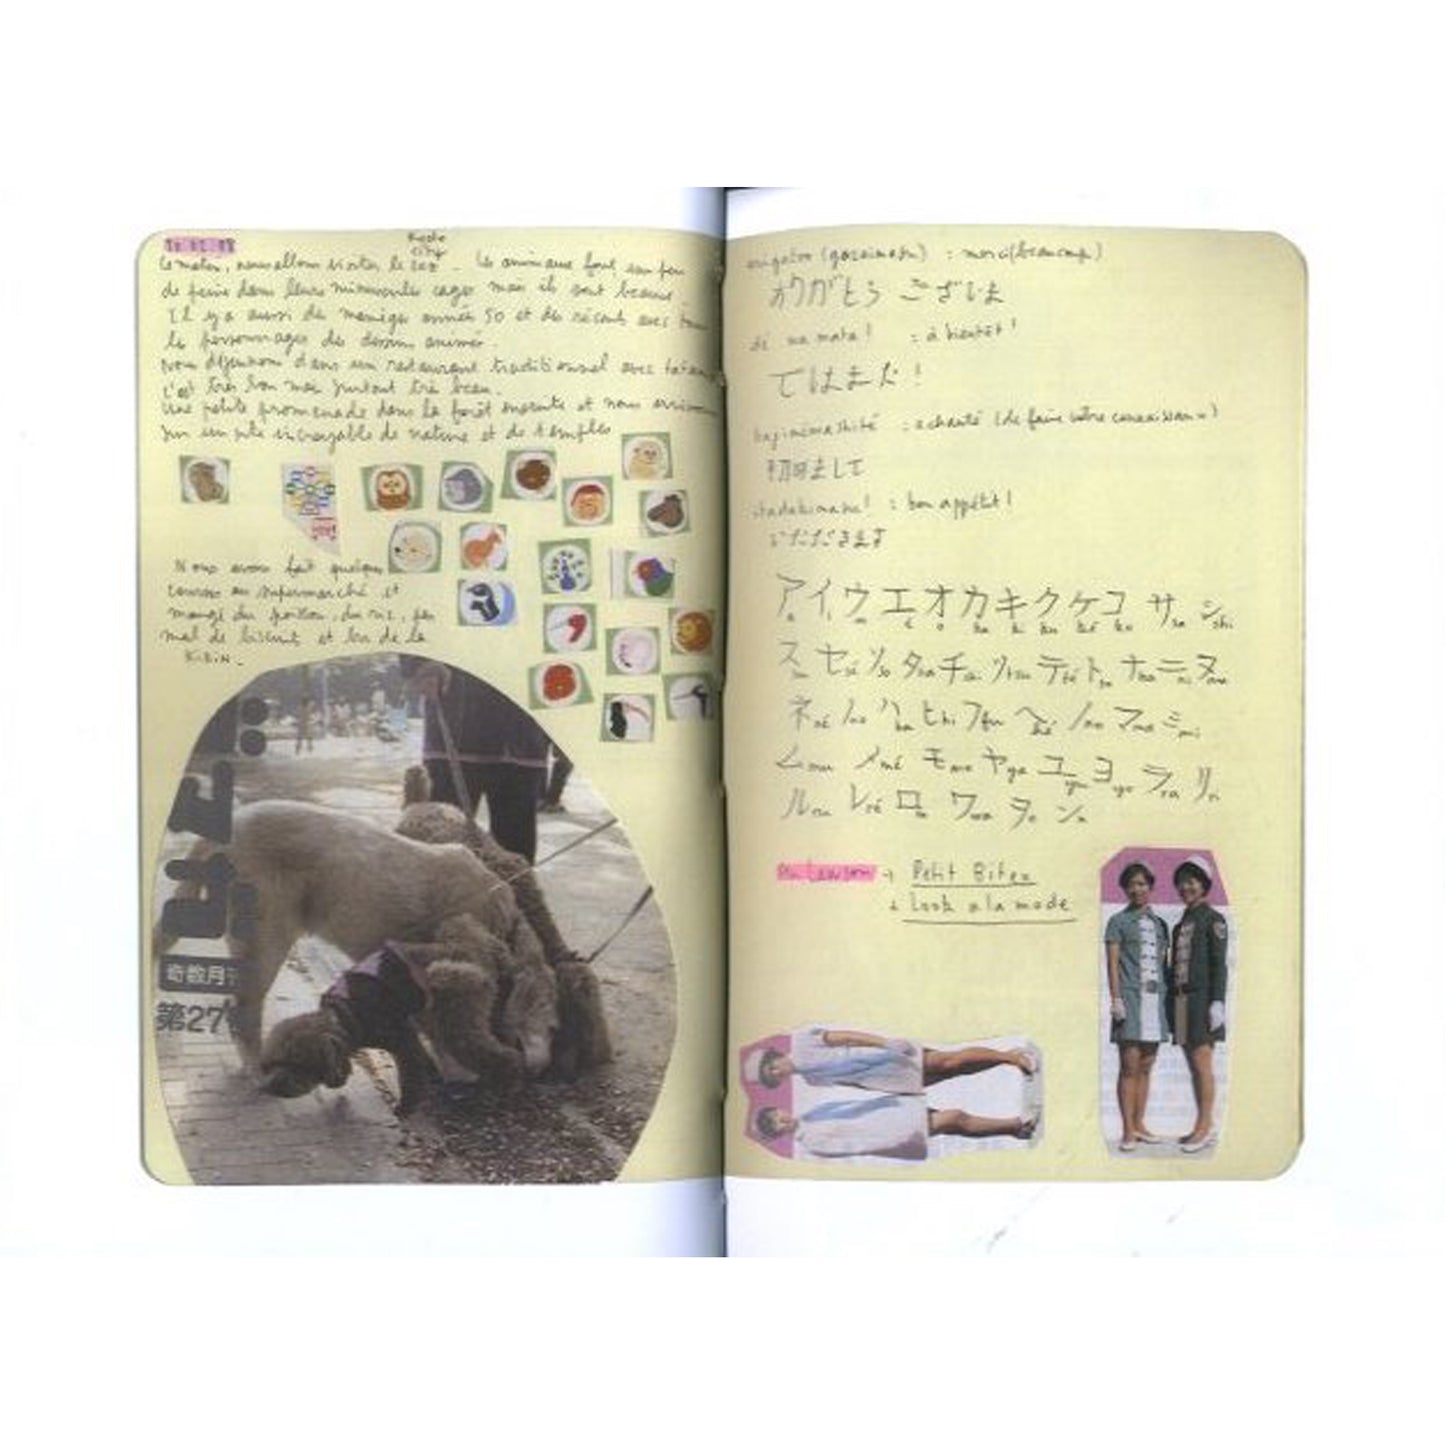 Le matin, nous allons visiter le zoo. Les animaux font un peu
de peine dans leurs minuscules cages mais ils sont beaux.
Il y a aussi des manèges année 50 et des récents avec tous
les personnages des dessin animé.
Nous déjeunons dans un restaurant traditionnel avec
c'est très bon mais surtout très beau.
Une petite promenade dans la forêt ensuite et nous arrivons
sur un site incroyable de nature et de temples
Nous avons fait quelques
courses au supermarché et
mangé du poisson, du riz, pas
mal de biscuit et bu de la
KiRiN.
奇数月
第27
arigatoo (gozaimasu) : merci (beaucoup)
dé wa mata! : à bientôt!
ではまた!
hajimémashité : enchanté (de faire votre connaissance)
初めまして
itadakimasu! : bon appétit!
いただきます
ア a イ i ウ u エ é オ o カ ka キ ki ク ku ケ ké コ ko サ sa シ shi
ス su セ sé ソ so タ ta チ chi ツ tsu テ té ト to ナ na ニ ni ヌ nu
ネ né ノ no ハ ha ヒ hi フ fu ヘ hé ノ no マ ma ミ mi
ム mu メ mé モ mo ヤ ya ユ yu ヨ yo ラ ra リ ri
ル ru レ ré ロ ro ワ wa ヲ o ン n
au Lawson → Petit
+ Look à la mode